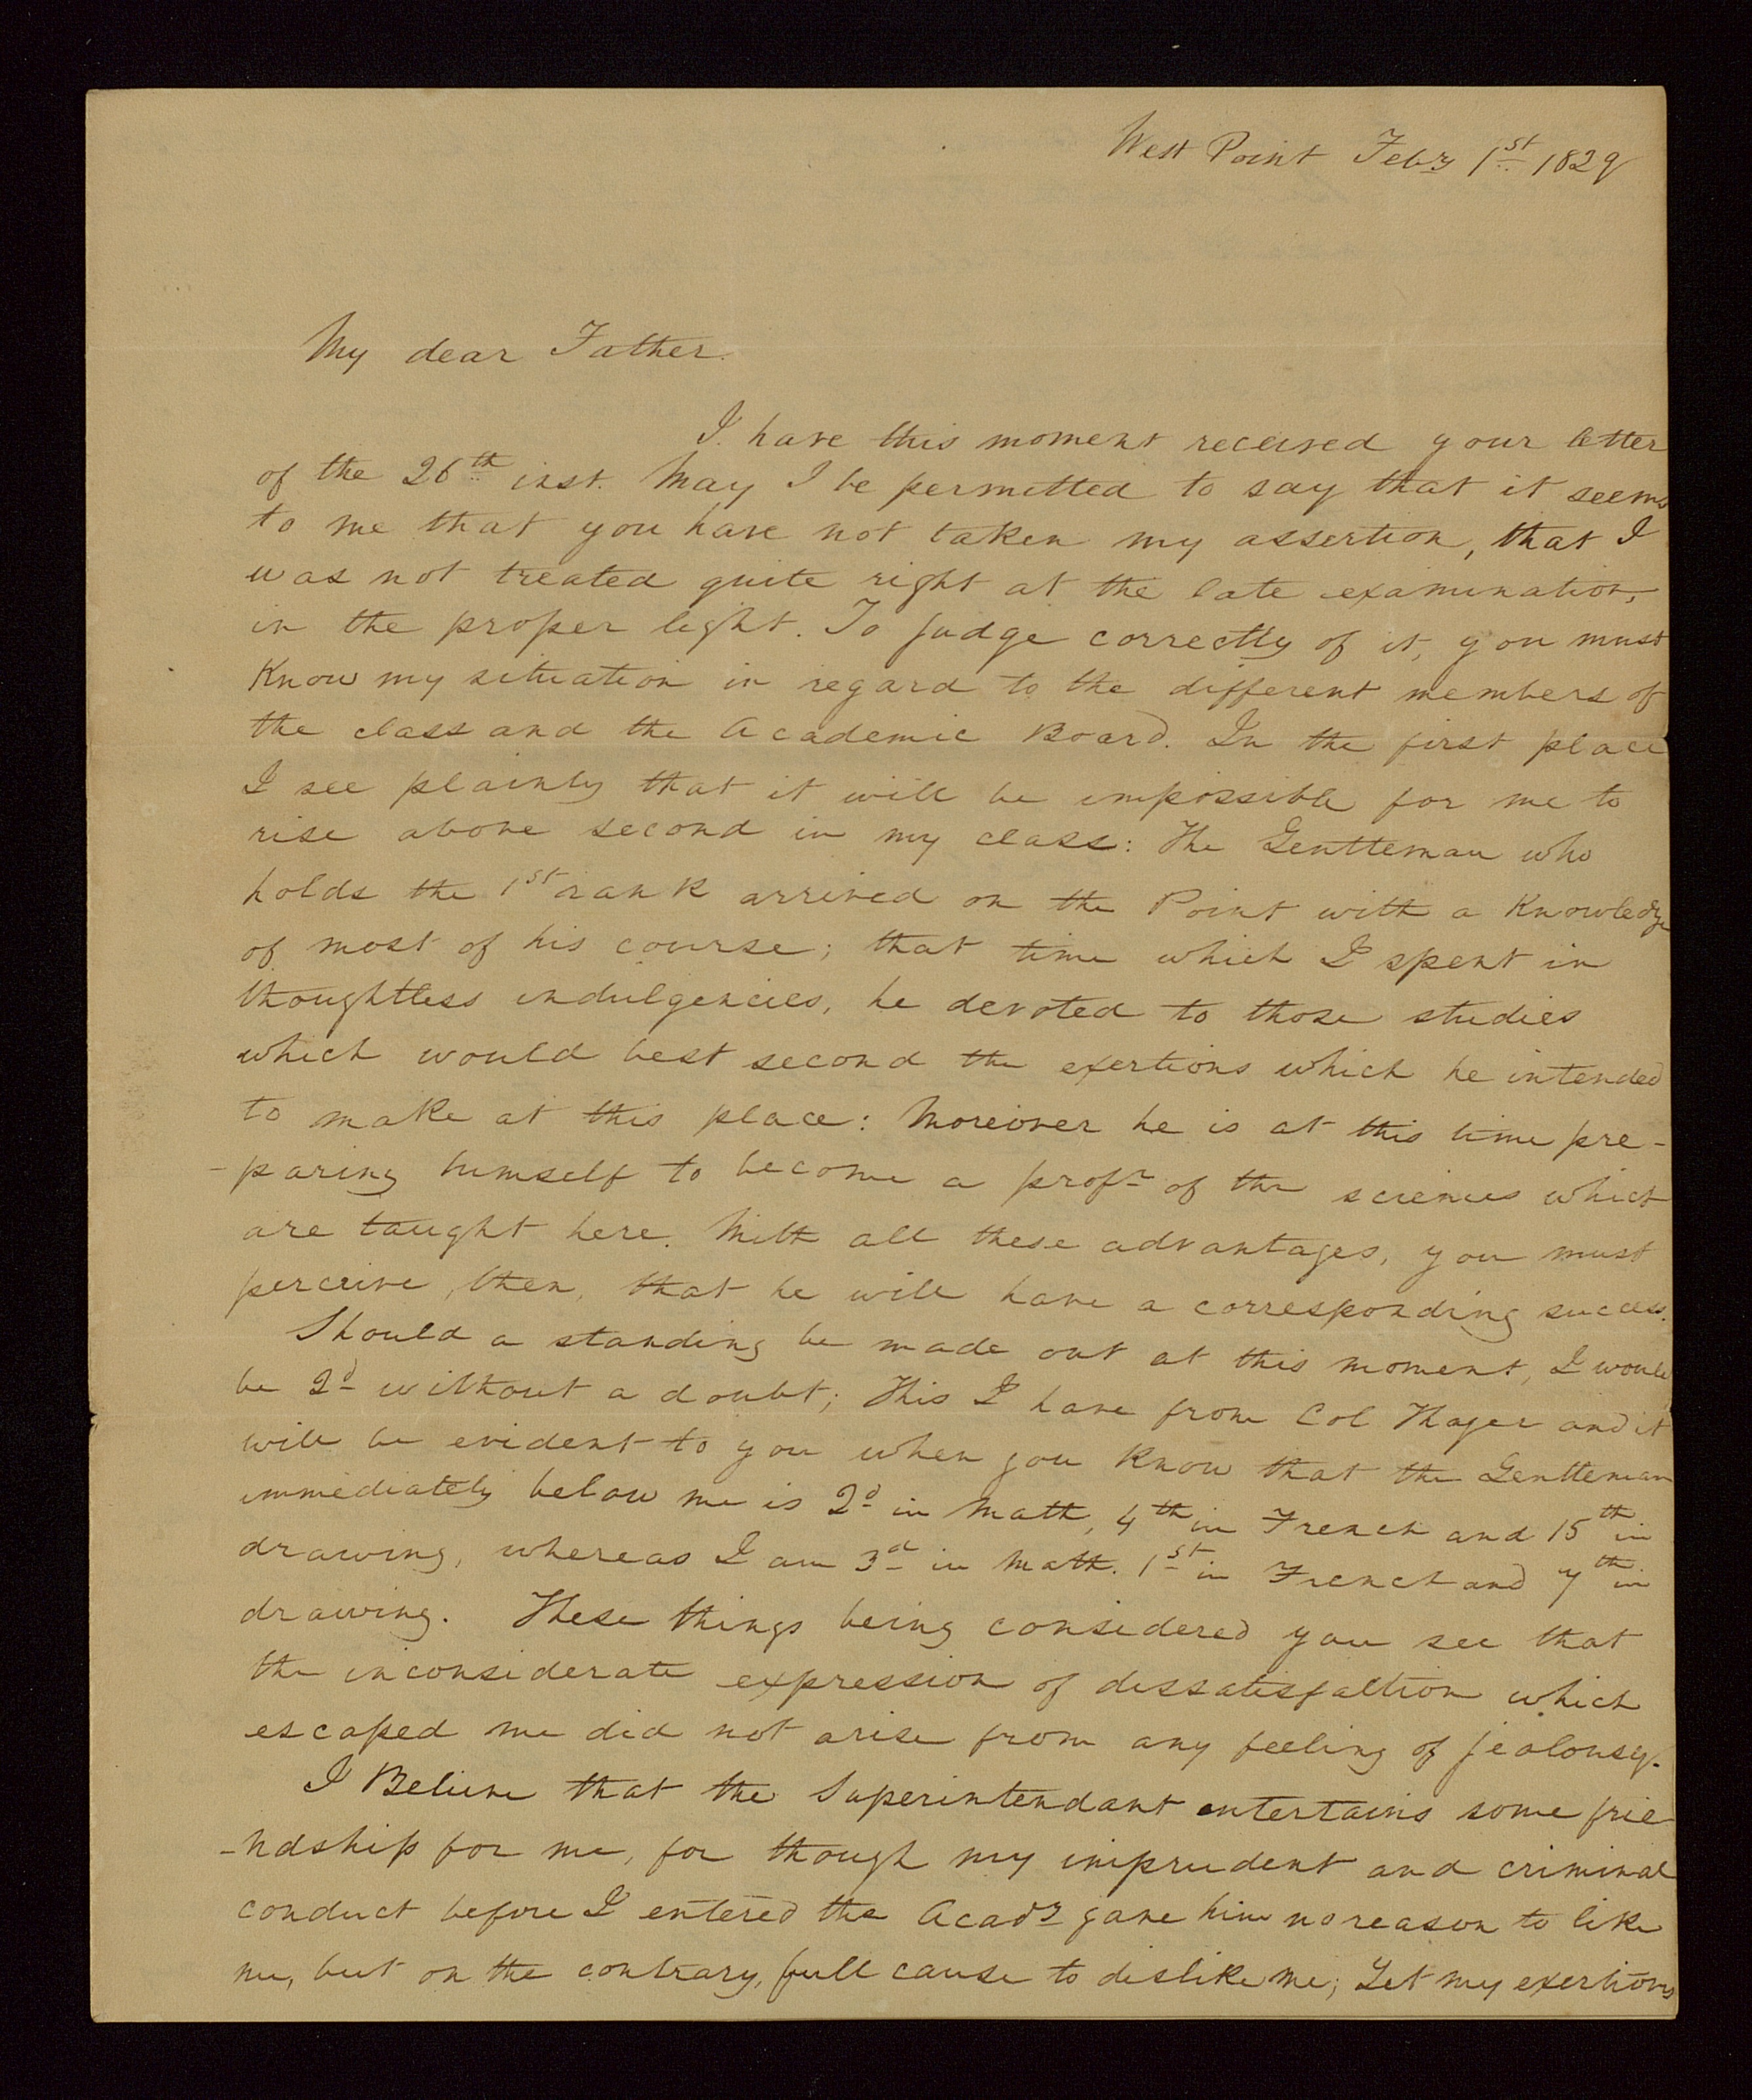 West Point Feby 1st 1829
My dear Father.
I have this moment received your letter
of the 26th inst. May I be permitted to say that it seems
to me that you have not taken my assertion, that I
was not treated quite right at the late examination,
in the proper light. To judge correctly of it, you must
know my situation in regard to the different members of
the class and the Academic Board. In the first place
I see plainly that it will be impossible for me to
rise above second in my class: The Gentleman who
holds the 1st rank arrived on the Point with a knowledge
of most of his course; that time which I spent in
thoughtless indulgencies, he devoted to those studies
which would best second the exertions which he intended
to make at this place: Moreover he is at this time pre-
-paring himself to become a profr of the sciences which
are taught here. With all these advantages, you must
perceive, then, that he will have a corresponding success.
Should a standing be made out at this moment, I would
be 2d without a doubt; This I have from Col Thayer and it
will be evident to you when you know that the Gentleman
immediately below me is 2d in Math, 4th in French and 15th in
drawing, whereas I am 3d in Math. 1st in French and 7th in
drawing. These things being considered you see that
the inconsiderate expression of dissatisfaction which
escaped me did not arise from any feeling of jealousy.
I Believe that the Superintendant entertains some frie-
-ndship for me, for though my imprudent and criminal
conduct before I entered the Acady gave him no reason to like
me, but on the contrary, full cause to dislike me; Yet my exertions